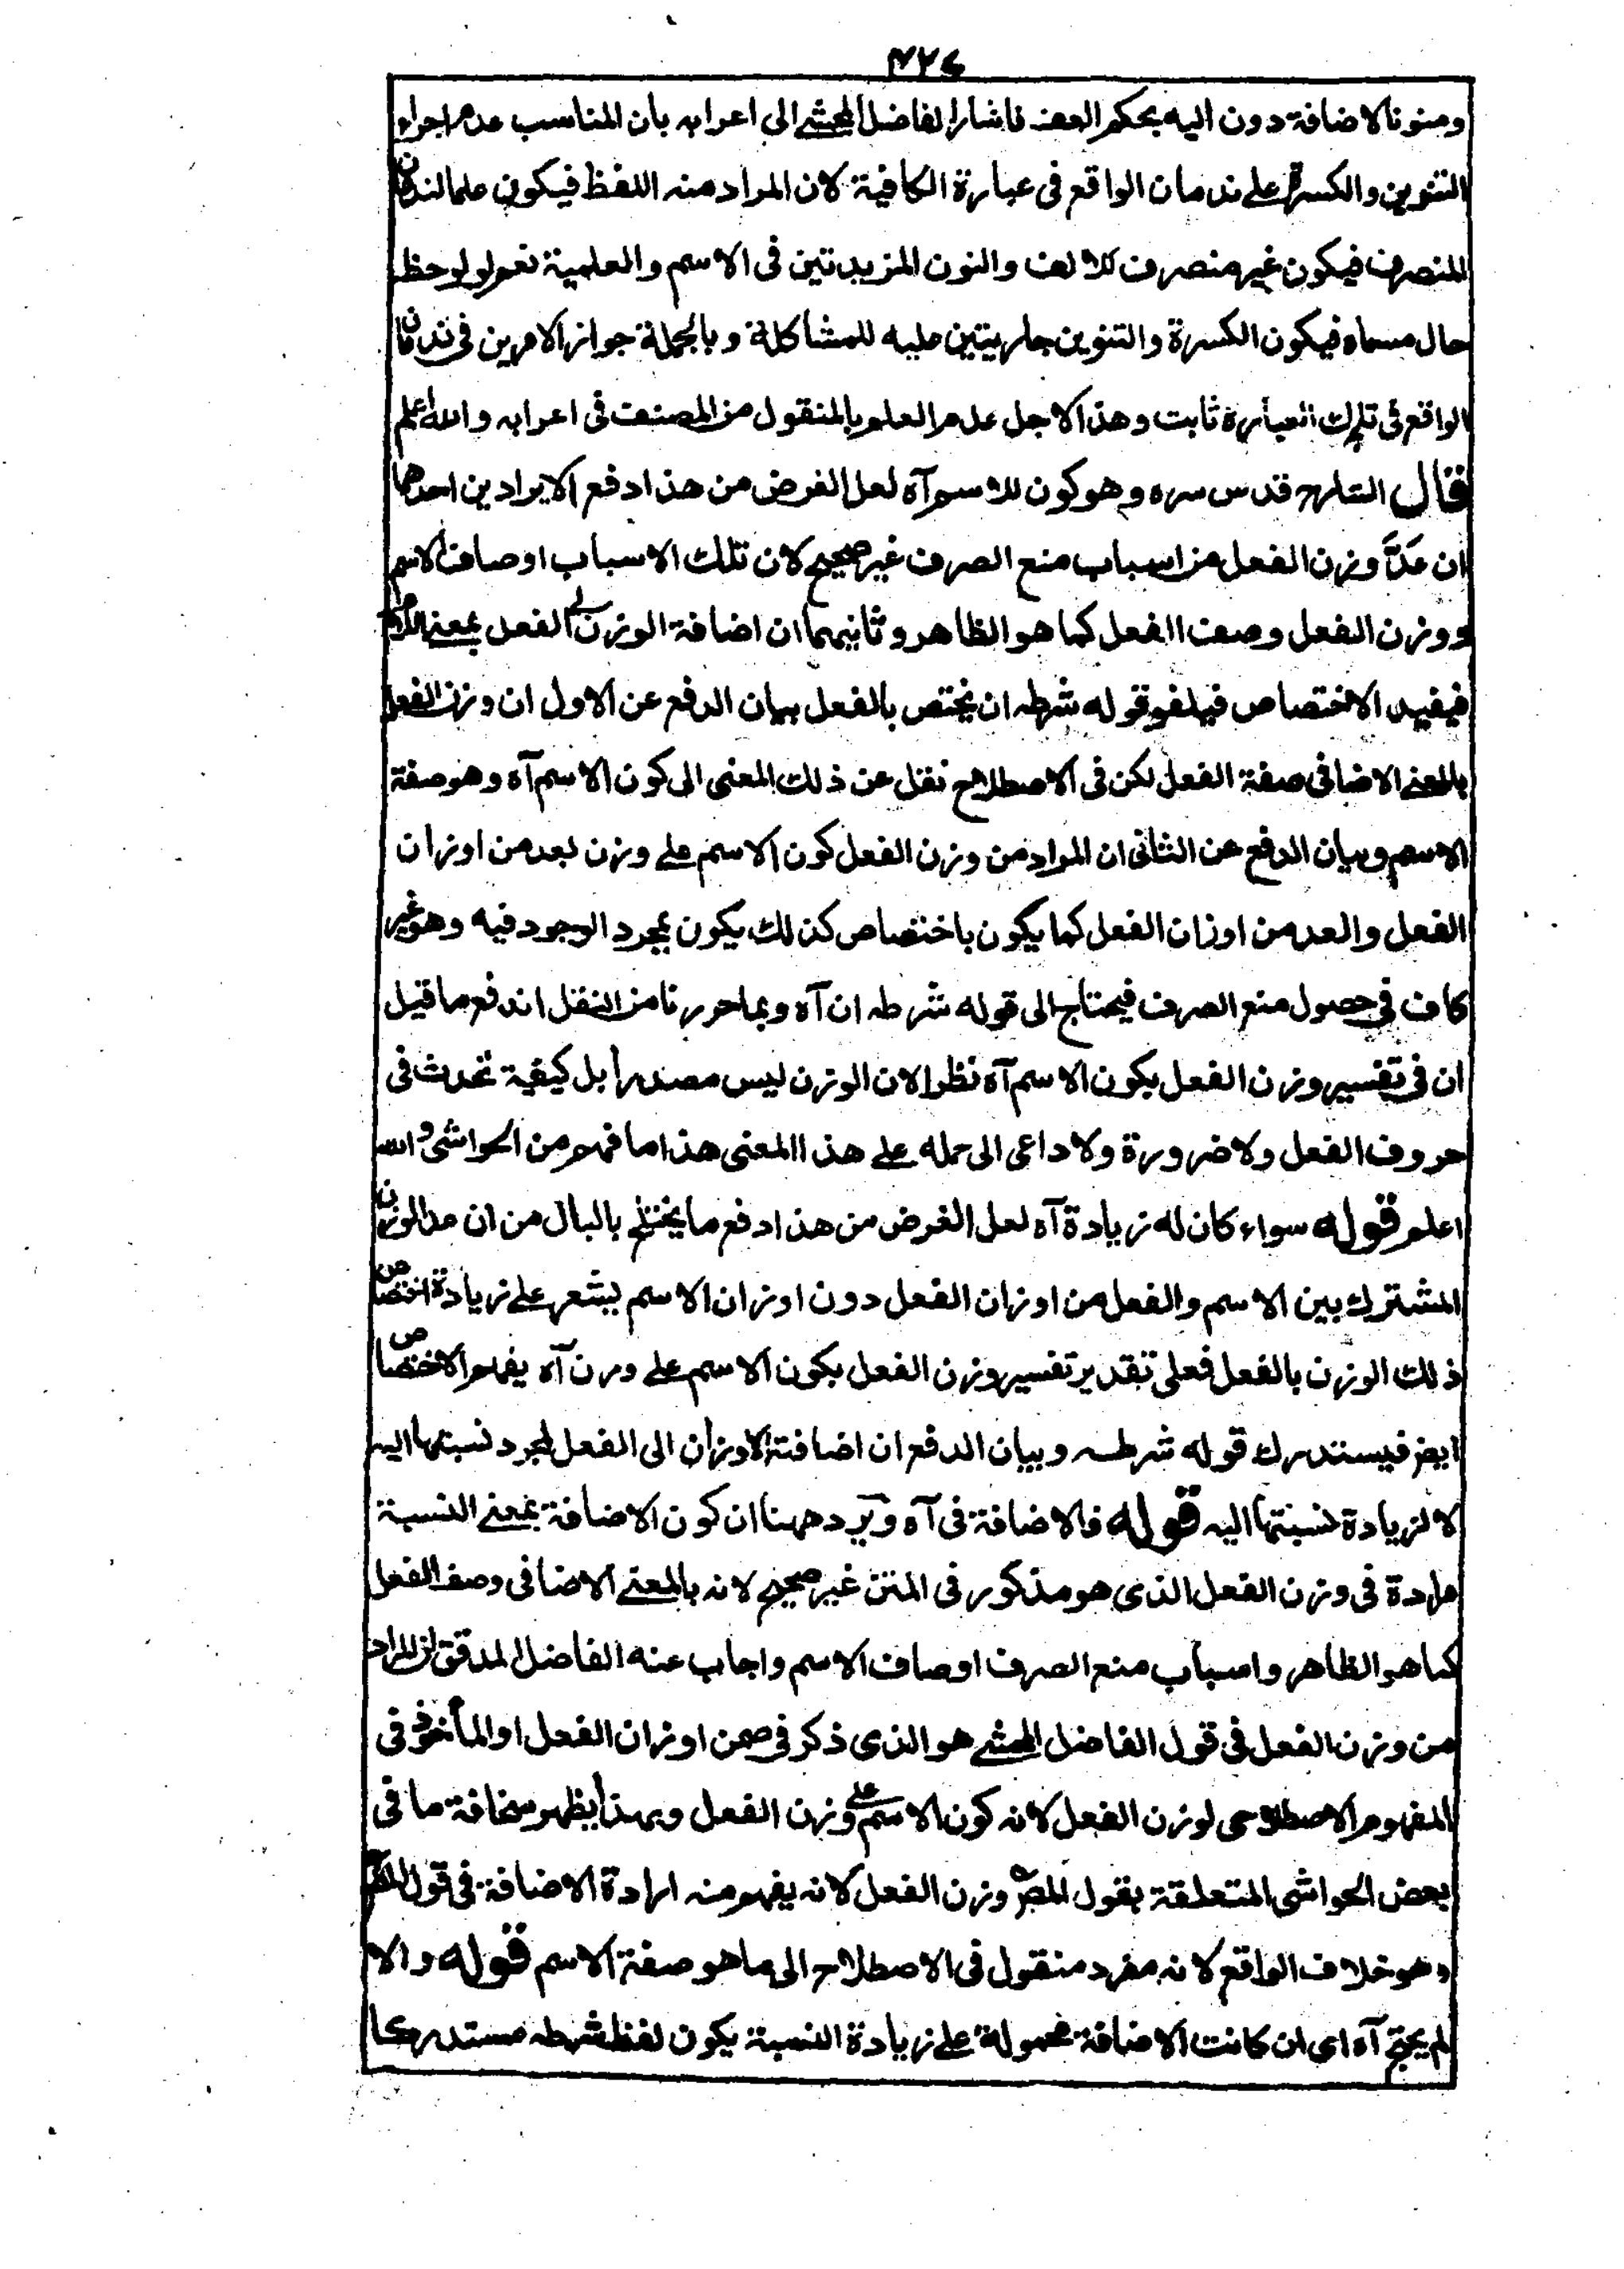 ٤٢٤
ومنونا لاضافة دون اليه بحكم العقد فاشار الفاضل المحشے الى اعرابه بان المناسب عدم اجراء
التنوين والكسرة علے ندمان الواقع فى عبارة الكافية لان المراد منه اللفظ فيكون علما لندمان
المنصرف فيكون غير منصرف للالف والنون المزيدتين فى الاسم والعلمية نعم لو لوحظ
حال مسماه فيكون الكسرة والتنوين جاريتين عليه للمشاكلة وبالجملة جواز الامرين فى ندمان
الواقع فى تلك العبارة ثابت وهذا لاجل عدم العلم بالمنقول من المصنف فى اعرابه والله اعلم
قال الشارح قدس سره وهو كون للاسم آه لعل الغرض من هذا دفع الايرادين احدهما
ان عَدَّ وزن الفعل من اسباب منع الصرف غير صحيح لان تلك الاسباب اوصاف الاسم
ووزن الفعل وصف الفعل كما هو الظاهر وثانيهما ان اضافة الوزن الى الفعل بمعنے اللام
فيفيد الاختصاص فيلغو قوله شرطه ان يختص بالفعل بيان الدفع عن الاول ان وزن الفعل
بالمعنے الاضافى صفة الفعل لكن فى الاصطلاح نقل عن ذلك المعنى الى كون الاسم آه وهو صفة
الاسم وبيان الدفع عن الثانى ان المراد من وزن الفعل كون الاسم علے وزن يعد من اوزان
الفعل والعد من اوزان الفعل كما يكون باختصاص كذلك يكون بمجرد الوجود فيه وهو غير
كاف فى حصول منع الصرف فيحتاج الى قوله شرطه ان آه وبما حررنا من النقل اندفع ما قيل
ان فى تفسير وزن الفعل بكون الاسم آه نظرا لان الوزن ليس مصدرا بل كيفية تحدث فى
حروف الفعل ولا ضرورة ولا داعى الى حمله علے هذا المعنى هذا ما فهم من الحواشى والله
اعلم قوله سواء كان له زيادة آه لعل الغرض من هذا دفع ما يختلج بالبال من ان عد الوزن
المشترك بين الاسم والفعل من اوزان الفعل دون اوزان الاسم يشعر علے زيادة اختصاص
ذلك الوزن بالفعل فعلى تقدير تفسير وزن الفعل بكون الاسم علے وزن آه يفهم الاختصاص
ايضا فيستدرك قوله شرطه وبيان الدفع ان اضافة الاوزان الى الفعل لمجرد نسبتها اليه
لا لزيادة نسبتها اليه قوله فالاضافة فى آه ويرد ههنا ان كون الاضافة بمعنے النسبة
مرادة فى وزن الفعل الذى هو مذكور فى المتن غير صحيح لانه بالمعنے الاضافى وصف الفعل
كما هو الظاهر واسباب منع الصرف اوصاف الاسم واجاب عنه الفاضل المدقق ان المراد
من وزن الفعل فى قول الفاضل المحشے هو الذى ذكر فى ضمن اوزان الفعل او المأخوذ فى
المفهوم الاصطلاحى لوزن الفعل لانه كون الاسم على وزن الفعل وبهذا يظهر سخافة ما فى
بعض الحواشى المتعلقة بقول المصؒ وزن الفعل لانه يفهم منه ارادة الاضافة فى قول المصؒ
وهو خلاف الواقع لانه مفرد منقول فى الاصطلاح الى ما هو صفة الاسم قوله والا
لم يحتج آه اى ان كانت الاضافة محمولة علے زيادة النسبة يكون لفظ شرطه مستدركا